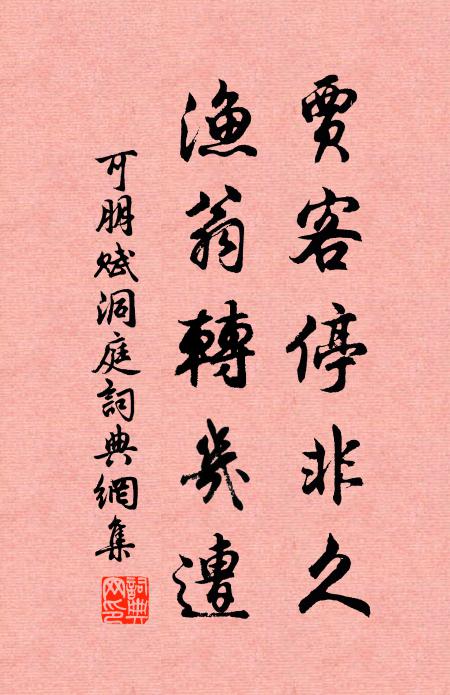 賈客停非久
漁翁轉幾遭
可朋賦洞庭詞典網集
詞典網印